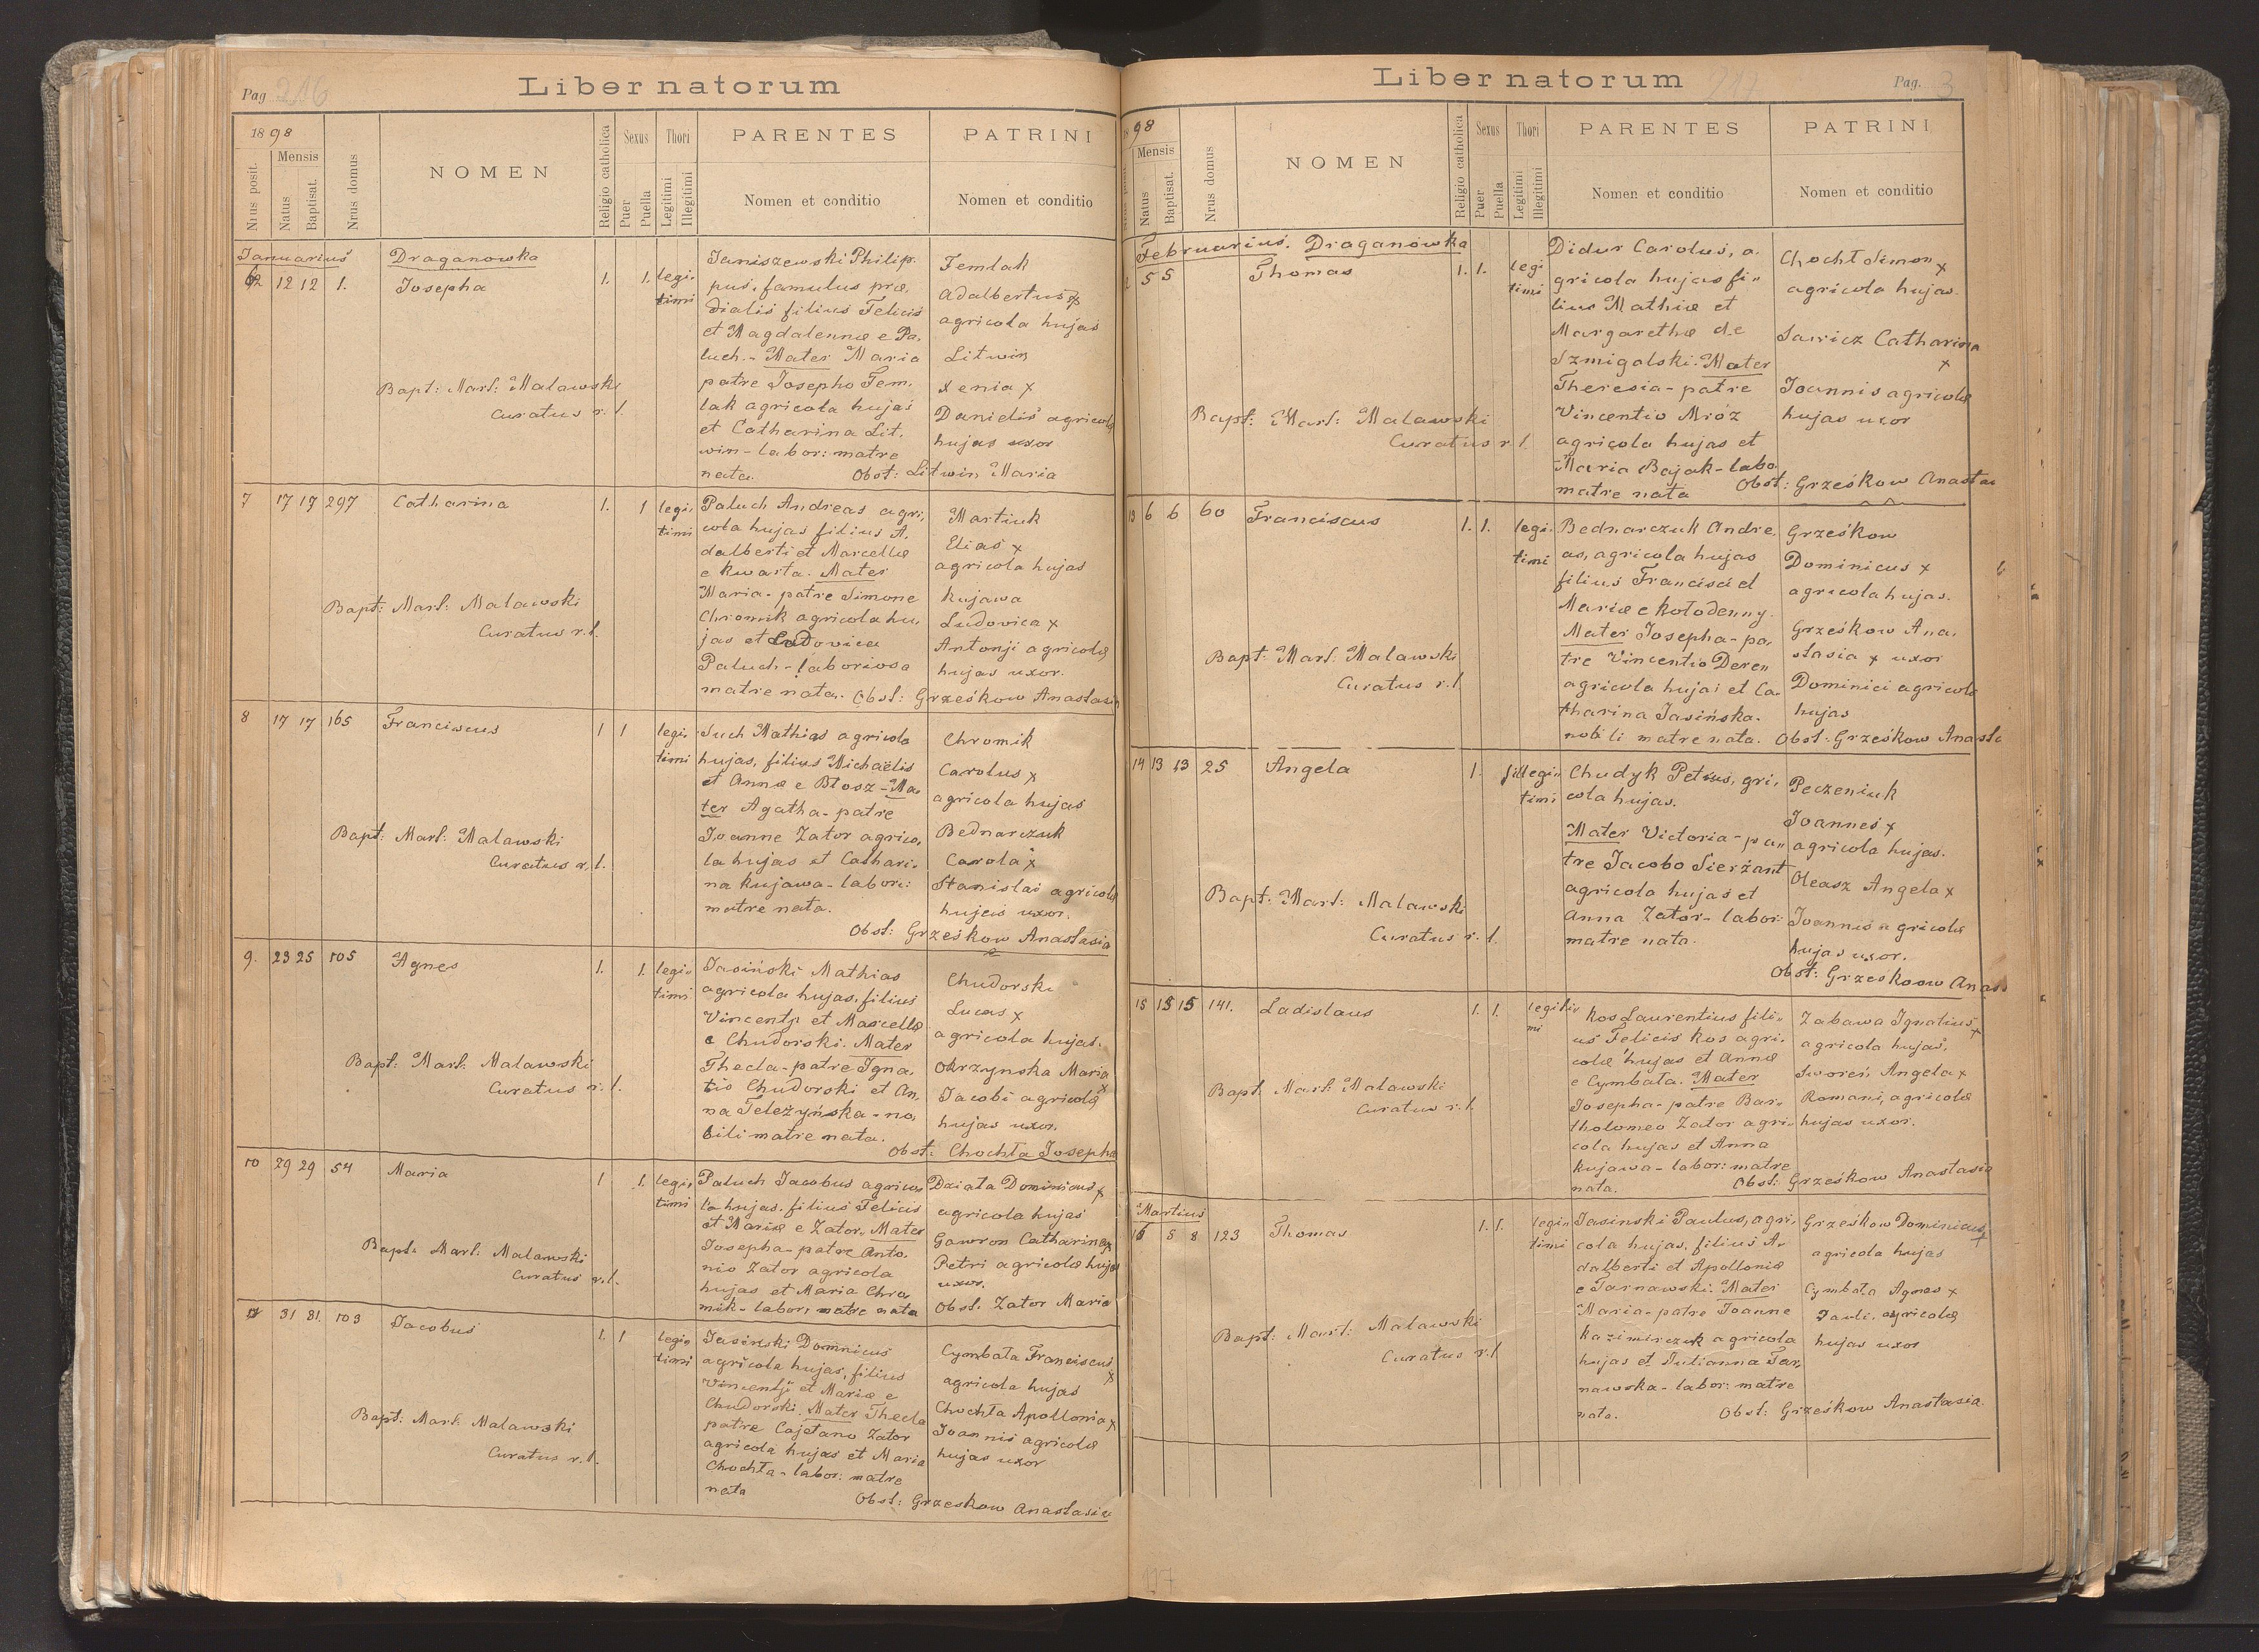 Pag 216
Liber natorum
1898
Nrus posit.
Mensis
Natus
Baptisat.
Nrus domus
NOMEN
Religio catholica
Sexus
Puer
Puella
Thori
Legitimi
Illegitimi
PARENTES
Nomen et conditio
PATRINI
Nomen et conditio
Januarius Draganowka
12 12 1. Josepha 1. 1. legi-
timi
Janiszewski Philip-
pus, famulus præ-
dialis filius Felicis
et Magdalennæ e Pa-
luch.- Mater Maria
patre Josepho Fem-
lak agricola hujas
et Catharina Lit-
win - labor: matre
nata.
Femlak
Adalbertus x
agricola hujas
Litwin
Xenia x
Danielis agricolæ
hujas uxor
Obst: Litwin Maria
Bapt: Marl: Malawski
Curatus r. l.
7 17 17 297 Catharina 1. 1 legi-
timi
Paluch Andreas agri-
cola hujas filius A-
dalberti et Marcellæ
e Kwarta. Mater
Maria - patre Simone
Chromik agricola hu-
jas et Ludovica
Paluch - laboriosa
matre nata.
Martiuk
Elias x
agricola hujas
Kujawa
Ludovica x
Antonji agricolæ
hujas uxor.
Obst: Grześkow Anastasia
Bapt: Marl: Malawski
Curatus r. l.
8 17 17 165 Franciscus 1 1 legi-
timi
Such Mathias agricola
hujas, filius Michaëlis
et Annæ e Błosz - Ma-
ter Agatha - patre
Joanne Zator agrico-
la hujas et Cathari-
na Kujawa - labori:
matre nata.
Chromik
Carolus x
agricola hujas
Bednarczuk
Carola x
Stanislai agricolæ
hujas uxor.
Obst: Grześkow Anastasia
Bapt: Marl: Malawski
Curatus r. l.
9. 23 25 105 Agnes 1. 1. legi-
timi
Jasiński Mathias
agricola hujas, filius
Vincentji et Marcellæ
e Chudorski. Mater
Thecla - patre Igna-
tio Chudorski et An-
na Teleżyńska - no-
bili matre nata.
Chudorski
Lucas x
agricola hujas.
Okrzynska Maria
x
Jacobi agricolæ
hujas uxor.
Obst: Chochła Josepha
Bapt: Marl: Malawski
Curatus r. l.
10 29 29 54 Maria 1 1. legi-
timi
Paluch Jacobus agrico-
la hujas, filius Felicis
et Mariæ e Zator. Mater
Josepha - patre Anto-
nio Zator agricola
hujas et Maria Chro-
mik - labor: matre nata
Działa Dominicus x
agricola hujas
Gawron Catharina x
Petri agricolæ hujas
uxor.
Obst. Zator Maria
Bapt: Marl: Malawski
Curatus r. l.
31 31. 103 Jacobus 1. 1 legi-
timi
Jasinski Dominicus
agricola hujas, filius
Vincentji et Mariæ e
Chudorski. Mater Thecla
patre Cajetano Zator
agricola hujas et Maria
Chochła - labor: matre
nata
Cymbała Franciscus
x
agricola hujas
Chochła Apollonia x
Joannis agricolæ
hujas uxor
Obst: Grzeskow Anastasia
Bapt: Marl: Malawski
Curatus r. l.
Liber natorum
217
Pag. 3
1898
Mensis
Natus
Baptisat.
Nrus domus
NOMEN
Religio catholica
Sexus
Puer
Puella
Thori
Legitimi
Illegitimi
PARENTES
Nomen et conditio
PATRINI
Nomen et conditio
Februarius. Draganówka
2 5 5 Thomas 1. 1. legi
timi
Didur Carolus, a-
gricola hujas fi-
lius Mathiæ et
Margarethæ de
Szmigalski. Mater
Theresia - patre
Vincentio Mróz
agricola hujas et
Maria Bajak - labo
matre nata
Chochł Simon x
agricola hujas.
Sawicz Catharina
x
Joannis agricolæ
hujas uxor
Obst: Grześkow Anastas
Bapt: Marl: Malawski
Curatus r. l.
13 6 6 60 Franciscus 1. 1. legi-
timi
Bednarczuk Andre-
as, agricola hujas
filius Francisci et
Mariæ e Kołodenny.
Mater Josepha - pa-
tre Vincentio Deren
agricola hujas et Ca-
tharina Jasińska.
nobili matre nata.
Grześkow
Dominicus x
agricola hujas.
Grześkow Ana-
stasia x uxor
Dominici agricolæ
hujas
Obst. Grześkow Anasta
Bapt: Marl: Malawski
Curatus r. l.
14 13 13 25 Angela 1. illegi-
timi
Chudyk Petrus, gri-
cola hujas.
Mater Victoria - pa-
tre Jacobo Sierżant
agricola hujas et
Anna Zator - labor:
matre nata.
Peczeniuk
Joannes x
agricola hujas.
Oleasz Angela x
Joannis agricolæ
hujas uxor.
Obst: Grzeskoow Anas
Bapt: Marl: Malawski
Curatus r. l.
15 15 15 141. Ladislaus 1. 1. legiti-
mi
Kos Laurentius fili-
us Felicis Kos agri-
colæ hujas et Annæ
e Cymbała. Mater
Josepha - patre Bar-
tholomeo Zator agri-
cola hujas et Anna
Kujawa - labor: matre
nata.
Zabawa Ignatius
x
agricola hujas.
Sworeń Angela x
Romani, agricolæ
hujas uxor.
Obst: Grześkow Anastasia
Bapt. Marl: Malawski
Curatus r. l.
Martius
16 8 8 123 Thomas 1. 1. legi-
timi
Jasinski Paulus, agri-
cola hujas, filius A-
dalberti et Apolloniæ
e Tarnawski. Mater
Maria - patre Joanne
Kazimirczuk agricola
hujas et Julianna Tar-
nawska - labor: matre
nata.
Grześkow Dominicus
x
agricola hujas
Cymbała Agnes x
Pauli, agricolæ
hujas uxor
Obst: Grześkow Anastasia.
Bapt: Marl: Malawski
Curatus r. l.
117